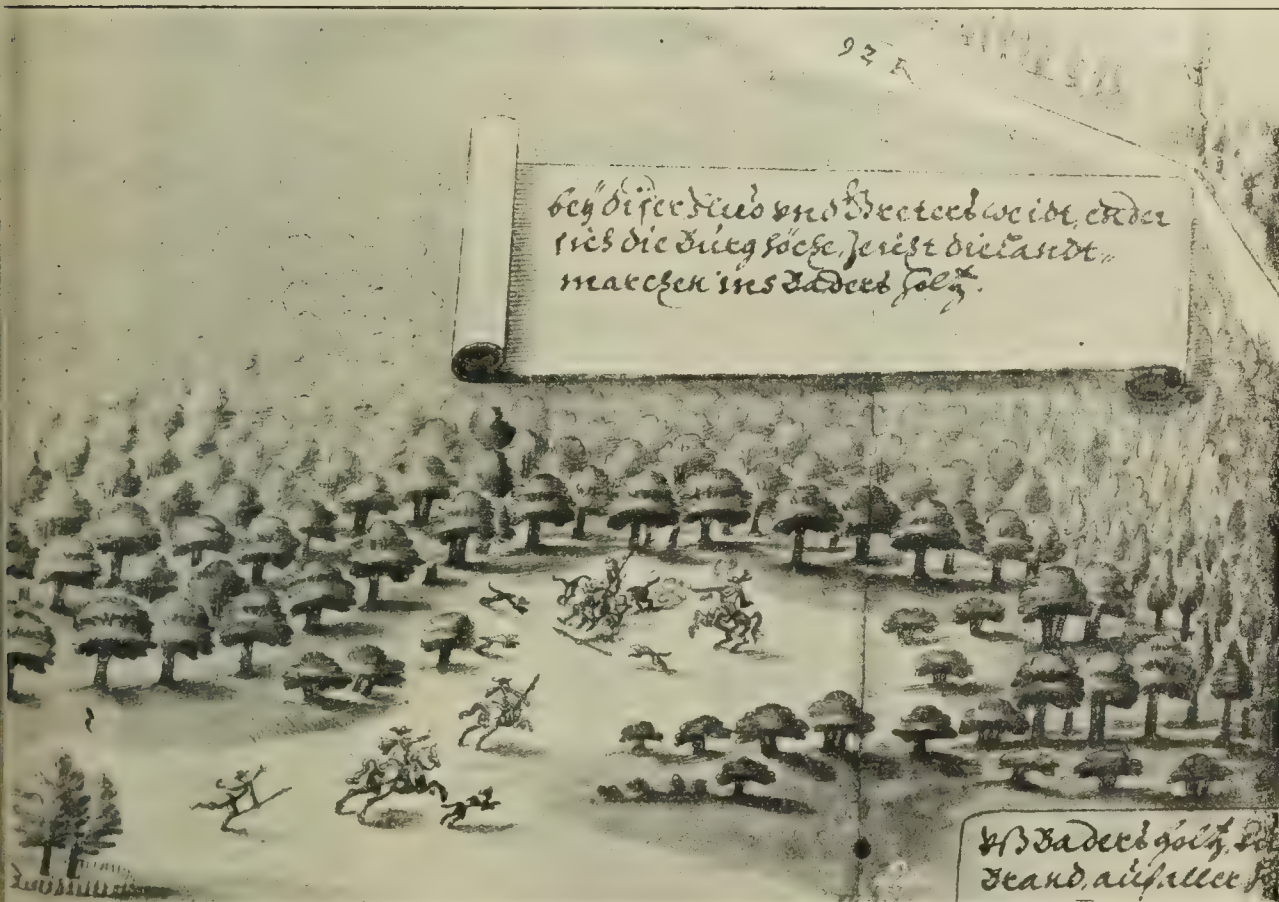 92
beÿ diser Flüö vnd Breters weidt, endet
sich die Burg höche, Jetist die Landt,,
marchen ins Baders holtz.
vß Baders holtz,
Brand, auf aller